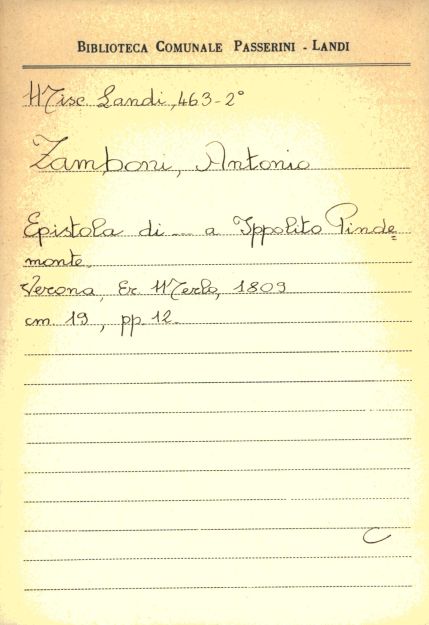 BIBLIOTECA COMUNALE PASSERINI - LANDI
Misc. Landi, 463-2°
Zamboni, Antonio
Epistola di ... a Ippolito Pinde=
monte.
Verona, Er. Merlo, 1809
cm. 19, pp. 12.
C